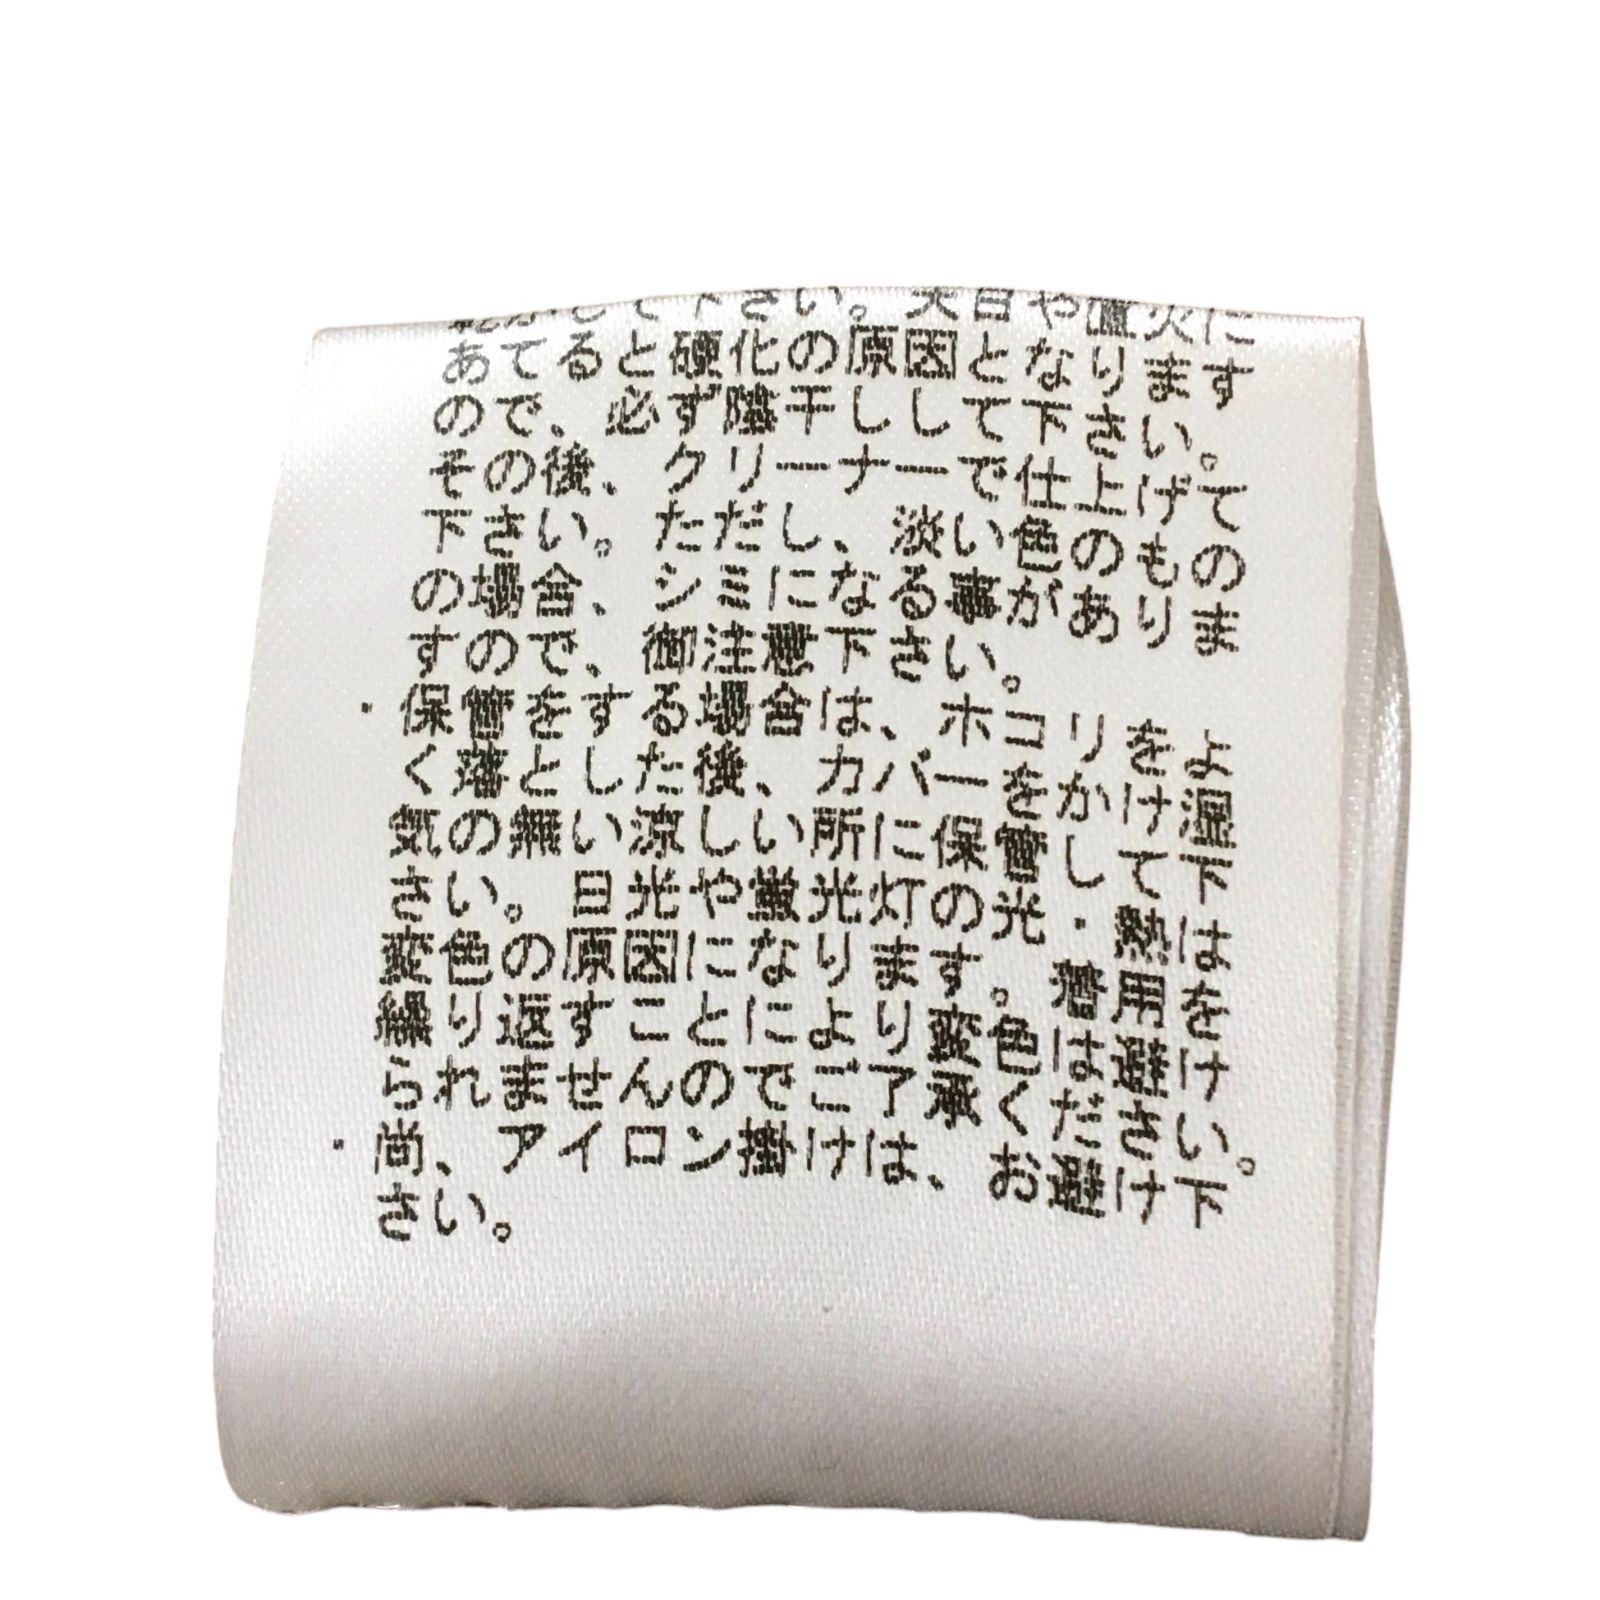 して下さい。天日や直火に
あてると硬化の原因となります
ので、必ず陰干しして下さい。
その後、クリーナーで仕上げて
下さい。ただし、淡い色のもの
の場合、シミになる事がありま
すので、御注意下さい。
・保管をする場合は、ホコリをよ
く落とした後、カバーをかけ湿
気の無い涼しい所に保管して下
さい。日光や蛍光灯の光・熱は
変色の原因になります。着用を
繰り返すことにより変色は避け
られませんのでご了承ください。
・尚、アイロン掛けは、お避け下
さい。